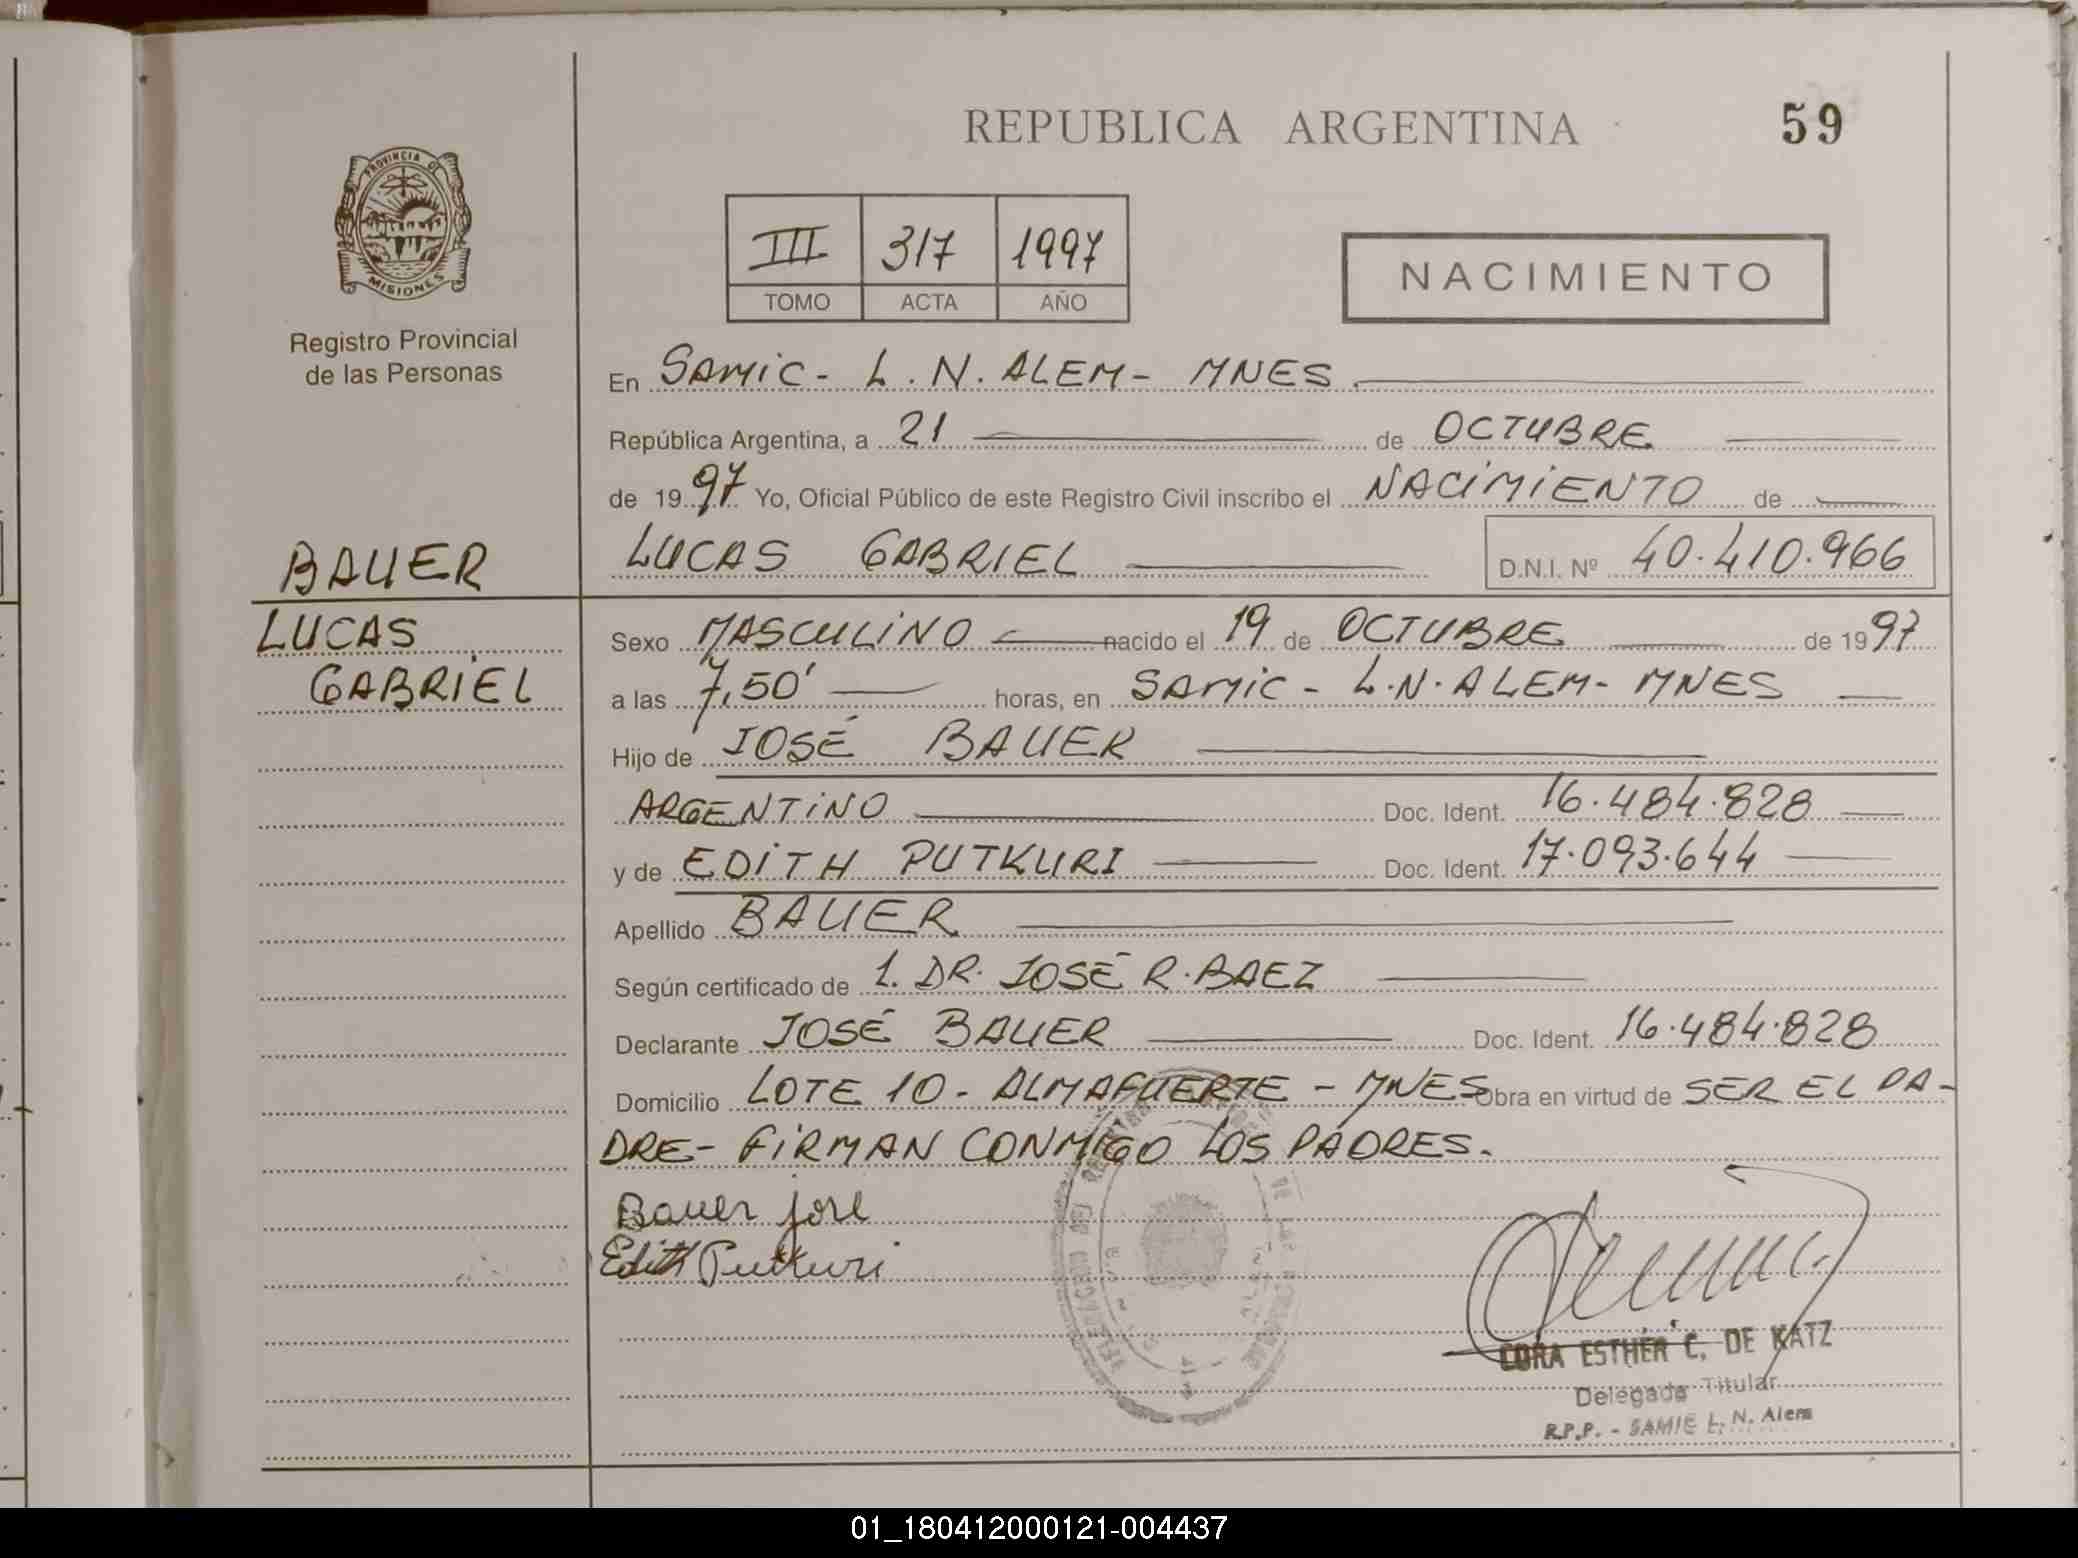 REPUBLICA ARGENTINA
59
PROVINCIA DE
MISIONES
Registro Provincial
de las Personas
III 317 1997
TOMO ACTA AÑO
NACIMIENTO
En SAMIC - L. N. ALEM - MNES
República Argentina, a 21 de OCTUBRE
de 1997 Yo, Oficial Público de este Registro Civil inscribo el NACIMIENTO de
BAUER
LUCAS GABRIEL
D.N.I. Nº 40.410.966
LUCAS
GABRIEL
Sexo MASCULINO nacido el 19 de OCTUBRE de 1997
a las 7,50' horas, en SAMIC - L.N. ALEM - MNES
Hijo de JOSÉ BAUER
ARGENTINO Doc. Ident. 16.484.828
y de EDITH PUTKURI Doc. Ident. 17.093.644
Apellido BAUER
Según certificado de 1. DR. JOSÉ R. BAEZ
Declarante JOSÉ BAUER Doc. Ident. 16.484.828
Domicilio LOTE 10 - ALMAFUERTE - MNES Obra en virtud de SER EL PA-
DRE - FIRMAN CONMIGO LOS PADRES.
Bauer José
Edith Putkuri
CORA ESTHER C. DE KATZ
Delegada Titular
R.P.P. - SAMIC L. N. Alem
01_180412000121-004437